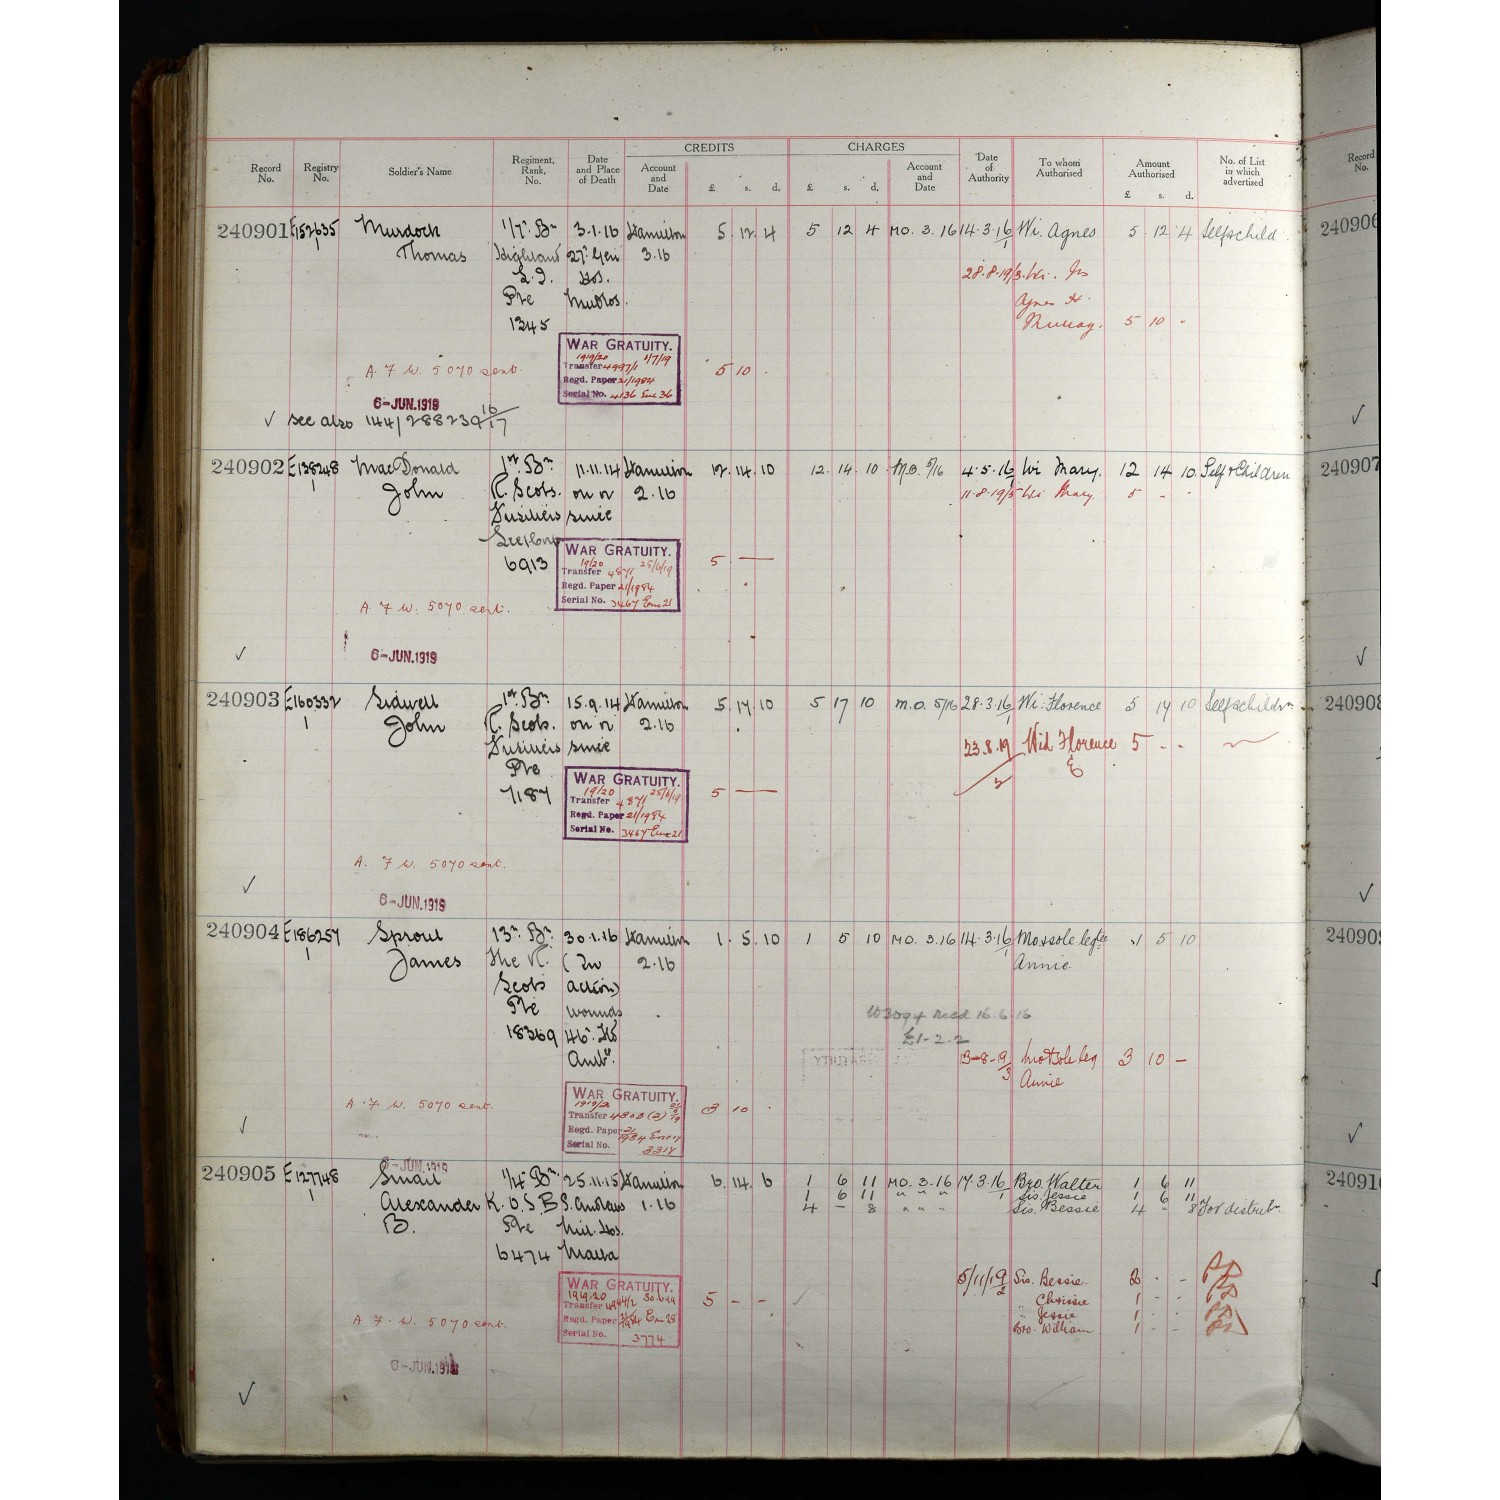 CREDITS CHARGES
Record No. Registry No. Soldier's Name Regiment, Rank, No. Date and Place of Death Account and Date £ s. d. £ s. d. Account and Date Date of Authority To whom Authorised Amount Authorised £ s. d. No. of List in which advertised Record No.
240901 E152635 Murdoch 1/7th Bn 3.1.16 Hamilton 5 12 4 5 12 4 MO. 3.16 14.3.16 Wi. Agnes 5 12 4 Self & child 240906
1 Thomas Highland 27th Gen 3.16 1
L.I. Hos. 28.8.19/3 Wi. Mrs
Pte Mudros. Agnes H.
1345 Murray. 5 10 -
WAR GRATUITY.
1919/20 1/7/19
A. F. W. 5070 sent. Transfer 4997/1 5 10
Regd. Paper 21/1984
6-JUN.1919 Serial No. 4136 Enc 36
✓ see also 144/288239 16/17 ✓
240902 E138248 MacDonald 1st Bn 11.11.14 Hamilton 12.14.10 12.14.10 M.O. 5/16 4.5.16 Wi Mary. 12 14 10 Self & Children 240907
1 John R. Scots. on or 2.16 11.8.19/5 Wi Mary 5 - -
Fusiliers since
6913
WAR GRATUITY.
19/20 25/6/19 5 —
Transfer 487/1
Regd. Paper 21/1984
A. F. W. 5070 sent. Serial No. 3467 Enc 21
✓ 6-JUN.1919 ✓
240903 E160332 Sidwell 1st Bn 15.9.14 Hamilton 5.17.10 5 17 10 M.O. 5/16 28.3.16 Wi: Florence 5 17 10 Self & childrn. 240908
1 John R. Scots. on or 2.16 1
Fusiliers since 23.8.19 Wid Florence 5 - -
Pte E
7187 2
WAR GRATUITY.
19/20 25/6/19 5 —
Transfer 487/1
Regd. Paper 21/1984
Serial No. 3467 Enc 21
A. F. W. 5070 sent.
✓ 6-JUN.1919 ✓
240904 E186257 Sproul 13th Bn 30.1.16 Hamilton 1.5.10 1 5 10 MO. 3.16 14.3.16 Mo & sole legtee 1 5 10 240909
1 James The R. (In 2.16 1 Annie.
Scots action)
Pte wounds W3094 recd 16.6.16
18369 46th Fd £1-2-2
Amb. 3-8-19/3 Mo & Sole leg 3 10 -
Annie
WAR GRATUITY.
A. F. W. 5070 sent. 1919/20 3 10
Transfer 4803 (2)
✓ Regd. Paper ✓
Serial No.
6-JUN.1919
240905 E127748 Smail 1/4th Bn 25.11.15 Hamilton 6.14.6 1 6 11 MO. 3.16 17.3.16 Bro. Walter 1 6 11 240910
1 Alexander K.O.S.B S. Andrews 1.16 1 6 11 " " " 1 Sis. Jessie 1 6 11
B. Pte Mil. Hos. 4 - 8 " " " Sis. Bessie 4 - 8 For distribn.
6474 Malta
5/11/19/2 Sis. Bessie. 2 - -
WAR GRATUITY.
1919.20 30.6.19 5 - - ✓ " Chrissie 1 - -
Transfer " Jessie 1 - -
A. F. W. 5070 sent. Regd. Paper Bro. William 1 - -
Serial No. 3774
6-JUN.1919
✓